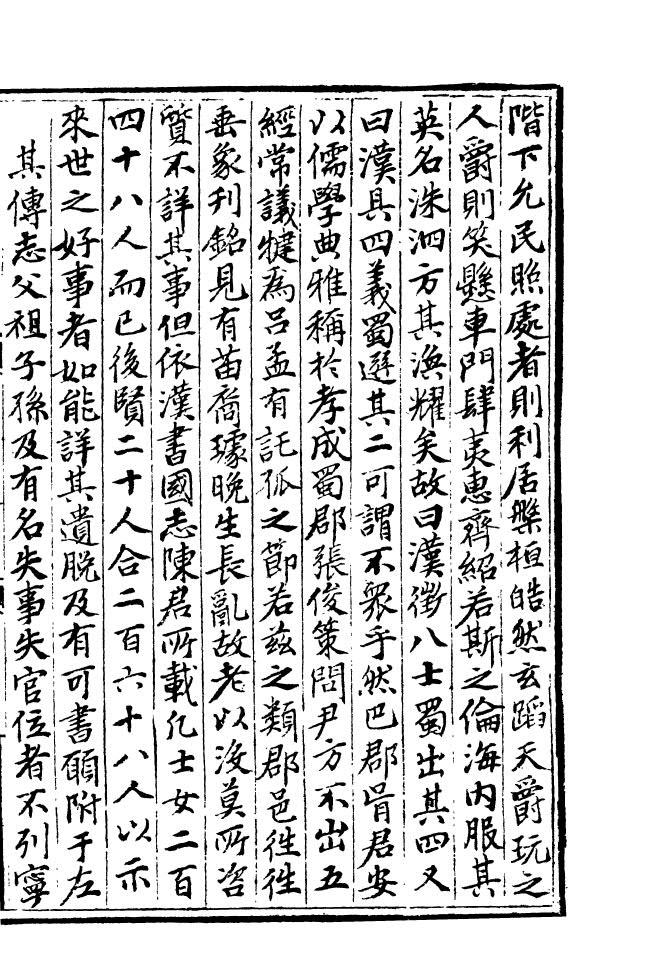 階下允民照處者則利居槃桓皓然玄蹈天爵玩之
人爵則笑懸車門肆夷惠齊紹若斯之倫海内服其
英名洙泗方其渙耀矣故曰漢徵八士蜀出其四又
曰漢具四義蜀選其二可謂不衆乎然巴郡胥君安
以儒學典雅稱於孝成蜀郡張俊策問尹方不出五
經常議犍為吕孟有託孤之節若兹之類郡邑徃徃
垂象刋銘見有苗裔璩晚生長亂故老以没莫所咨
質不詳其事但依漢書國志陳君所載凡士女二百
四十八人而已後賢二十人合二百六十八人以示
來世之好事者如能詳其遺脱及有可書願附于左
其傳志父祖子孫及有名失事失官位者不列寧